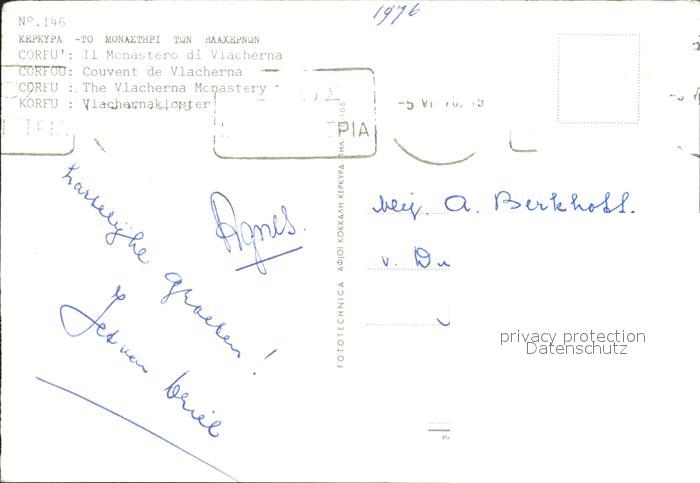 1976
Nº.146
ΚΕΡΚΥΡΑ -ΤΟ ΜΟΝΑΣΤΗΡΙ ΤΩΝ ΒΛΑΧΕΡΝΩΝ
CORFU': Il Monastero di Vlacherna
CORFOU: Couvent de Vlacherna
CORFU : The Vlacherna Monastery
KORFU : Vlachernakloster
-5 VI 76. 19
ΡΙΑ
hartelijke
groeten!
Agnes.
Jet van
FOTOTECHNICA ΑΦΙΟΙ ΚΟΚΚΑΛΗ ΚΕΡΚΥΡΑ ΤΗΛ.
Mej. A. Berkhoff.
v. Du
privacy protection
Datenschutz